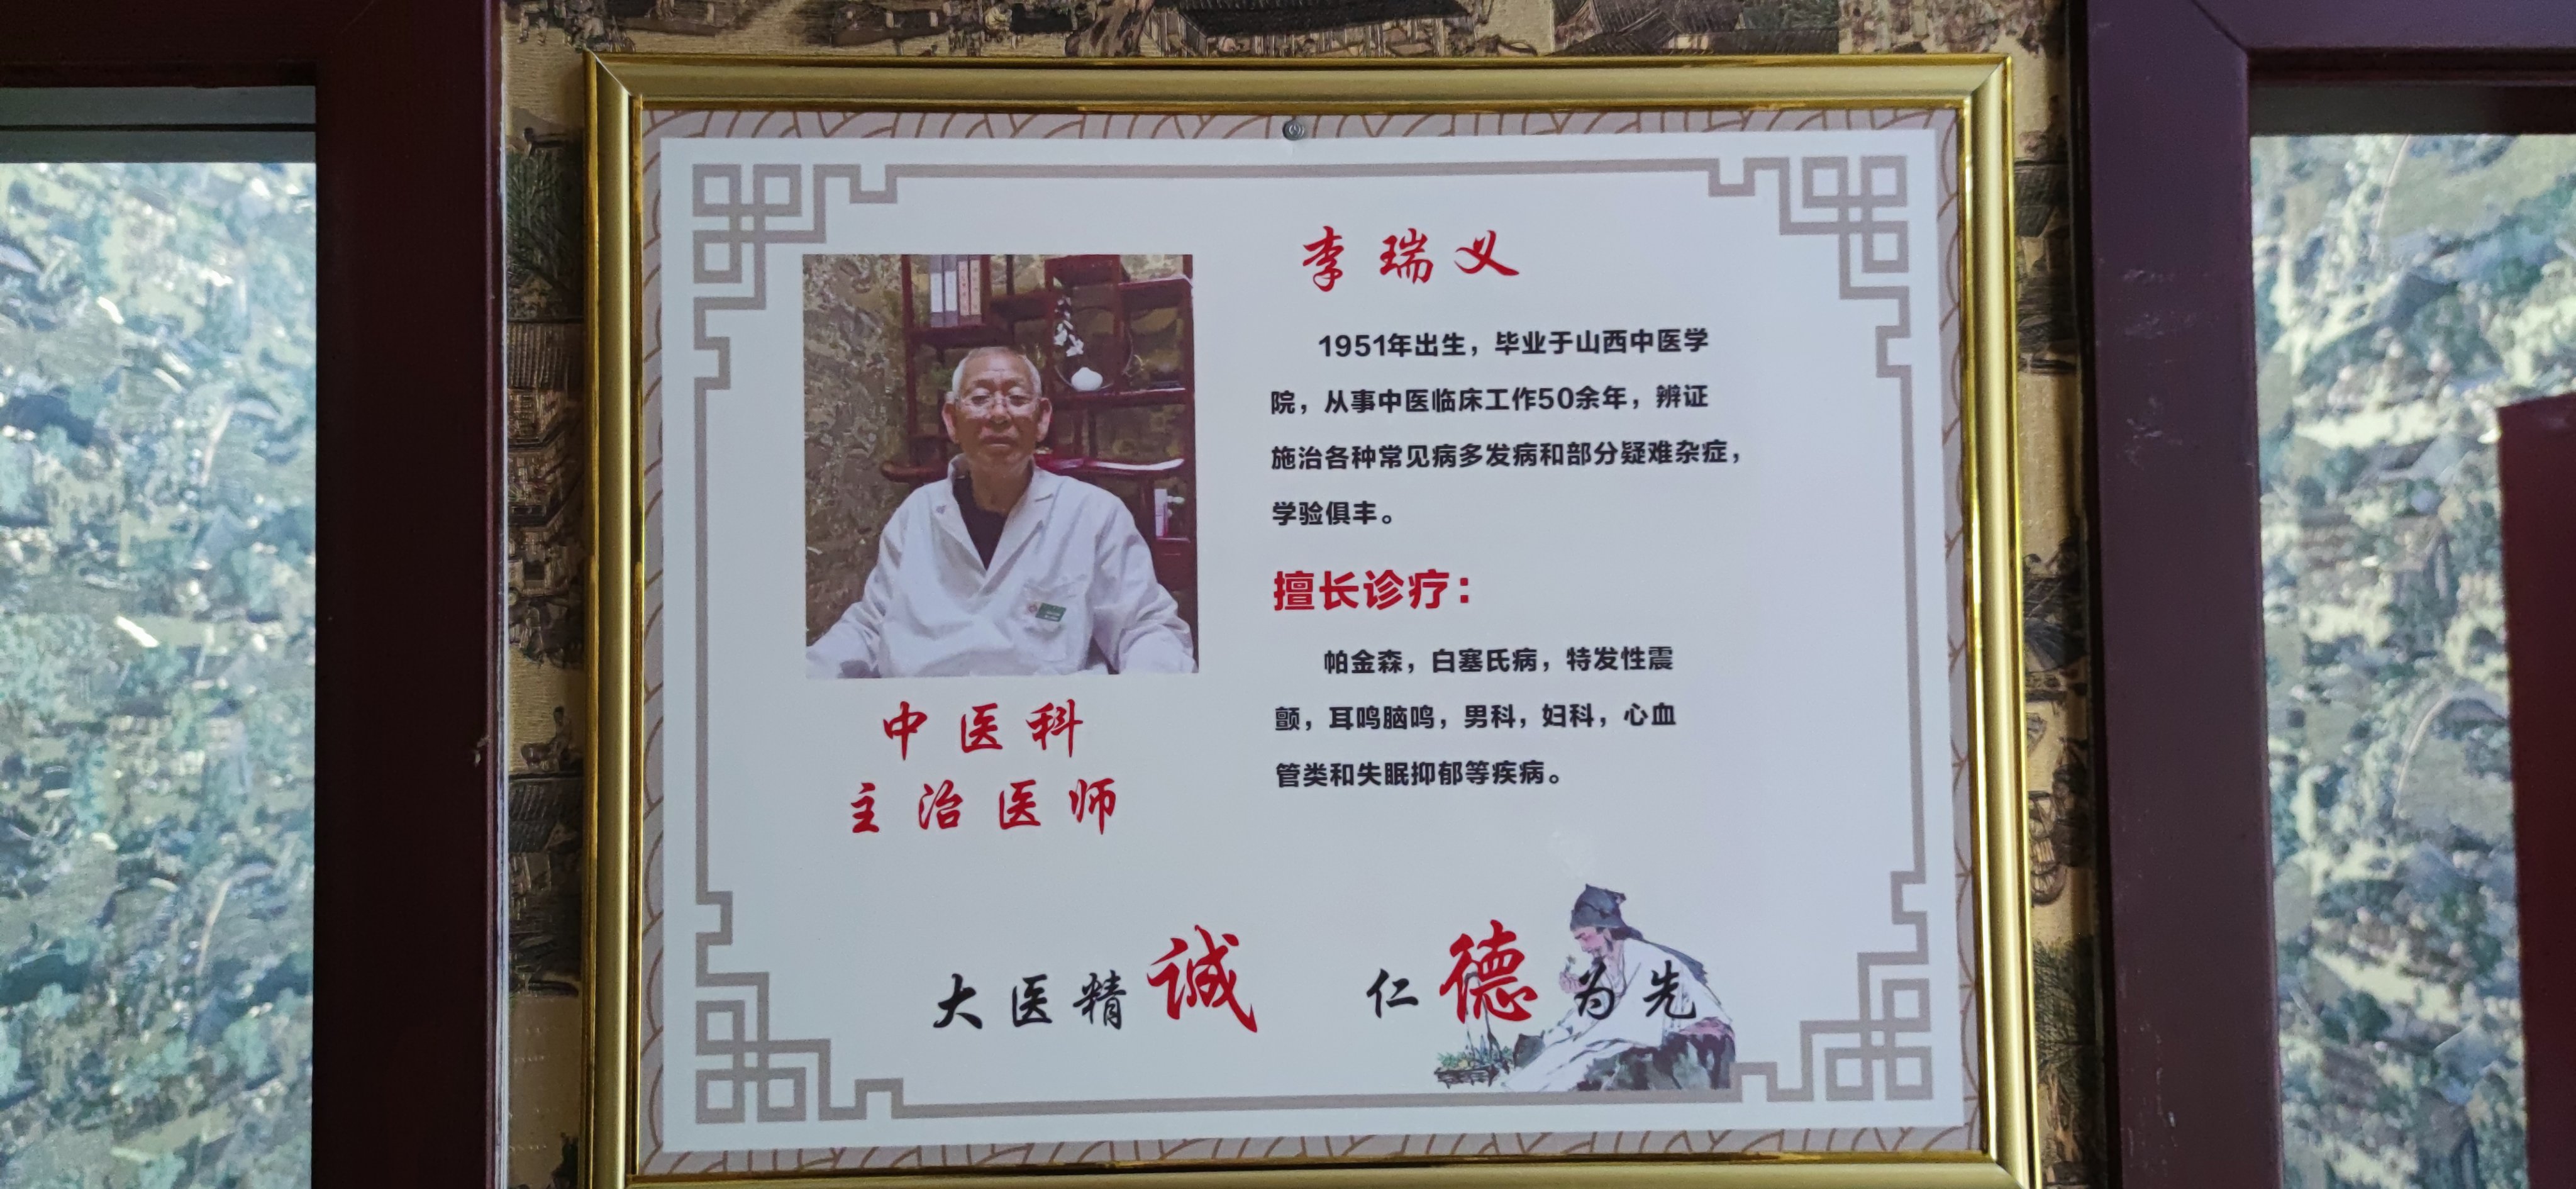 李瑞义
1951年出生，毕业于山西中医学
院，从事中医临床工作50余年，辨证
施治各种常见病多发病和部分疑难杂症，
学验俱丰。
擅长诊疗：
帕金森，白塞氏病，特发性震
颤，耳鸣脑鸣，男科，妇科，心血
管类和失眠抑郁等疾病。
中医科
主治医师
大医精诚 仁德为先